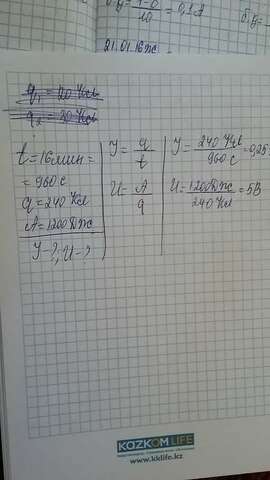 = 0,1 А
21.01.16
q₁ = 20 Кл
q₂ = 20 Кл
t = 16 мин =
= 960 с
q = 240 Кл
A = 1200 Дж
I - ?; U - ?
I = q/t
U = A/q
I = 240 Кл/960 с = 0,25
U = 1200 Дж/240 Кл = 5В
KAZKOM LIFE
www.kklife.kz